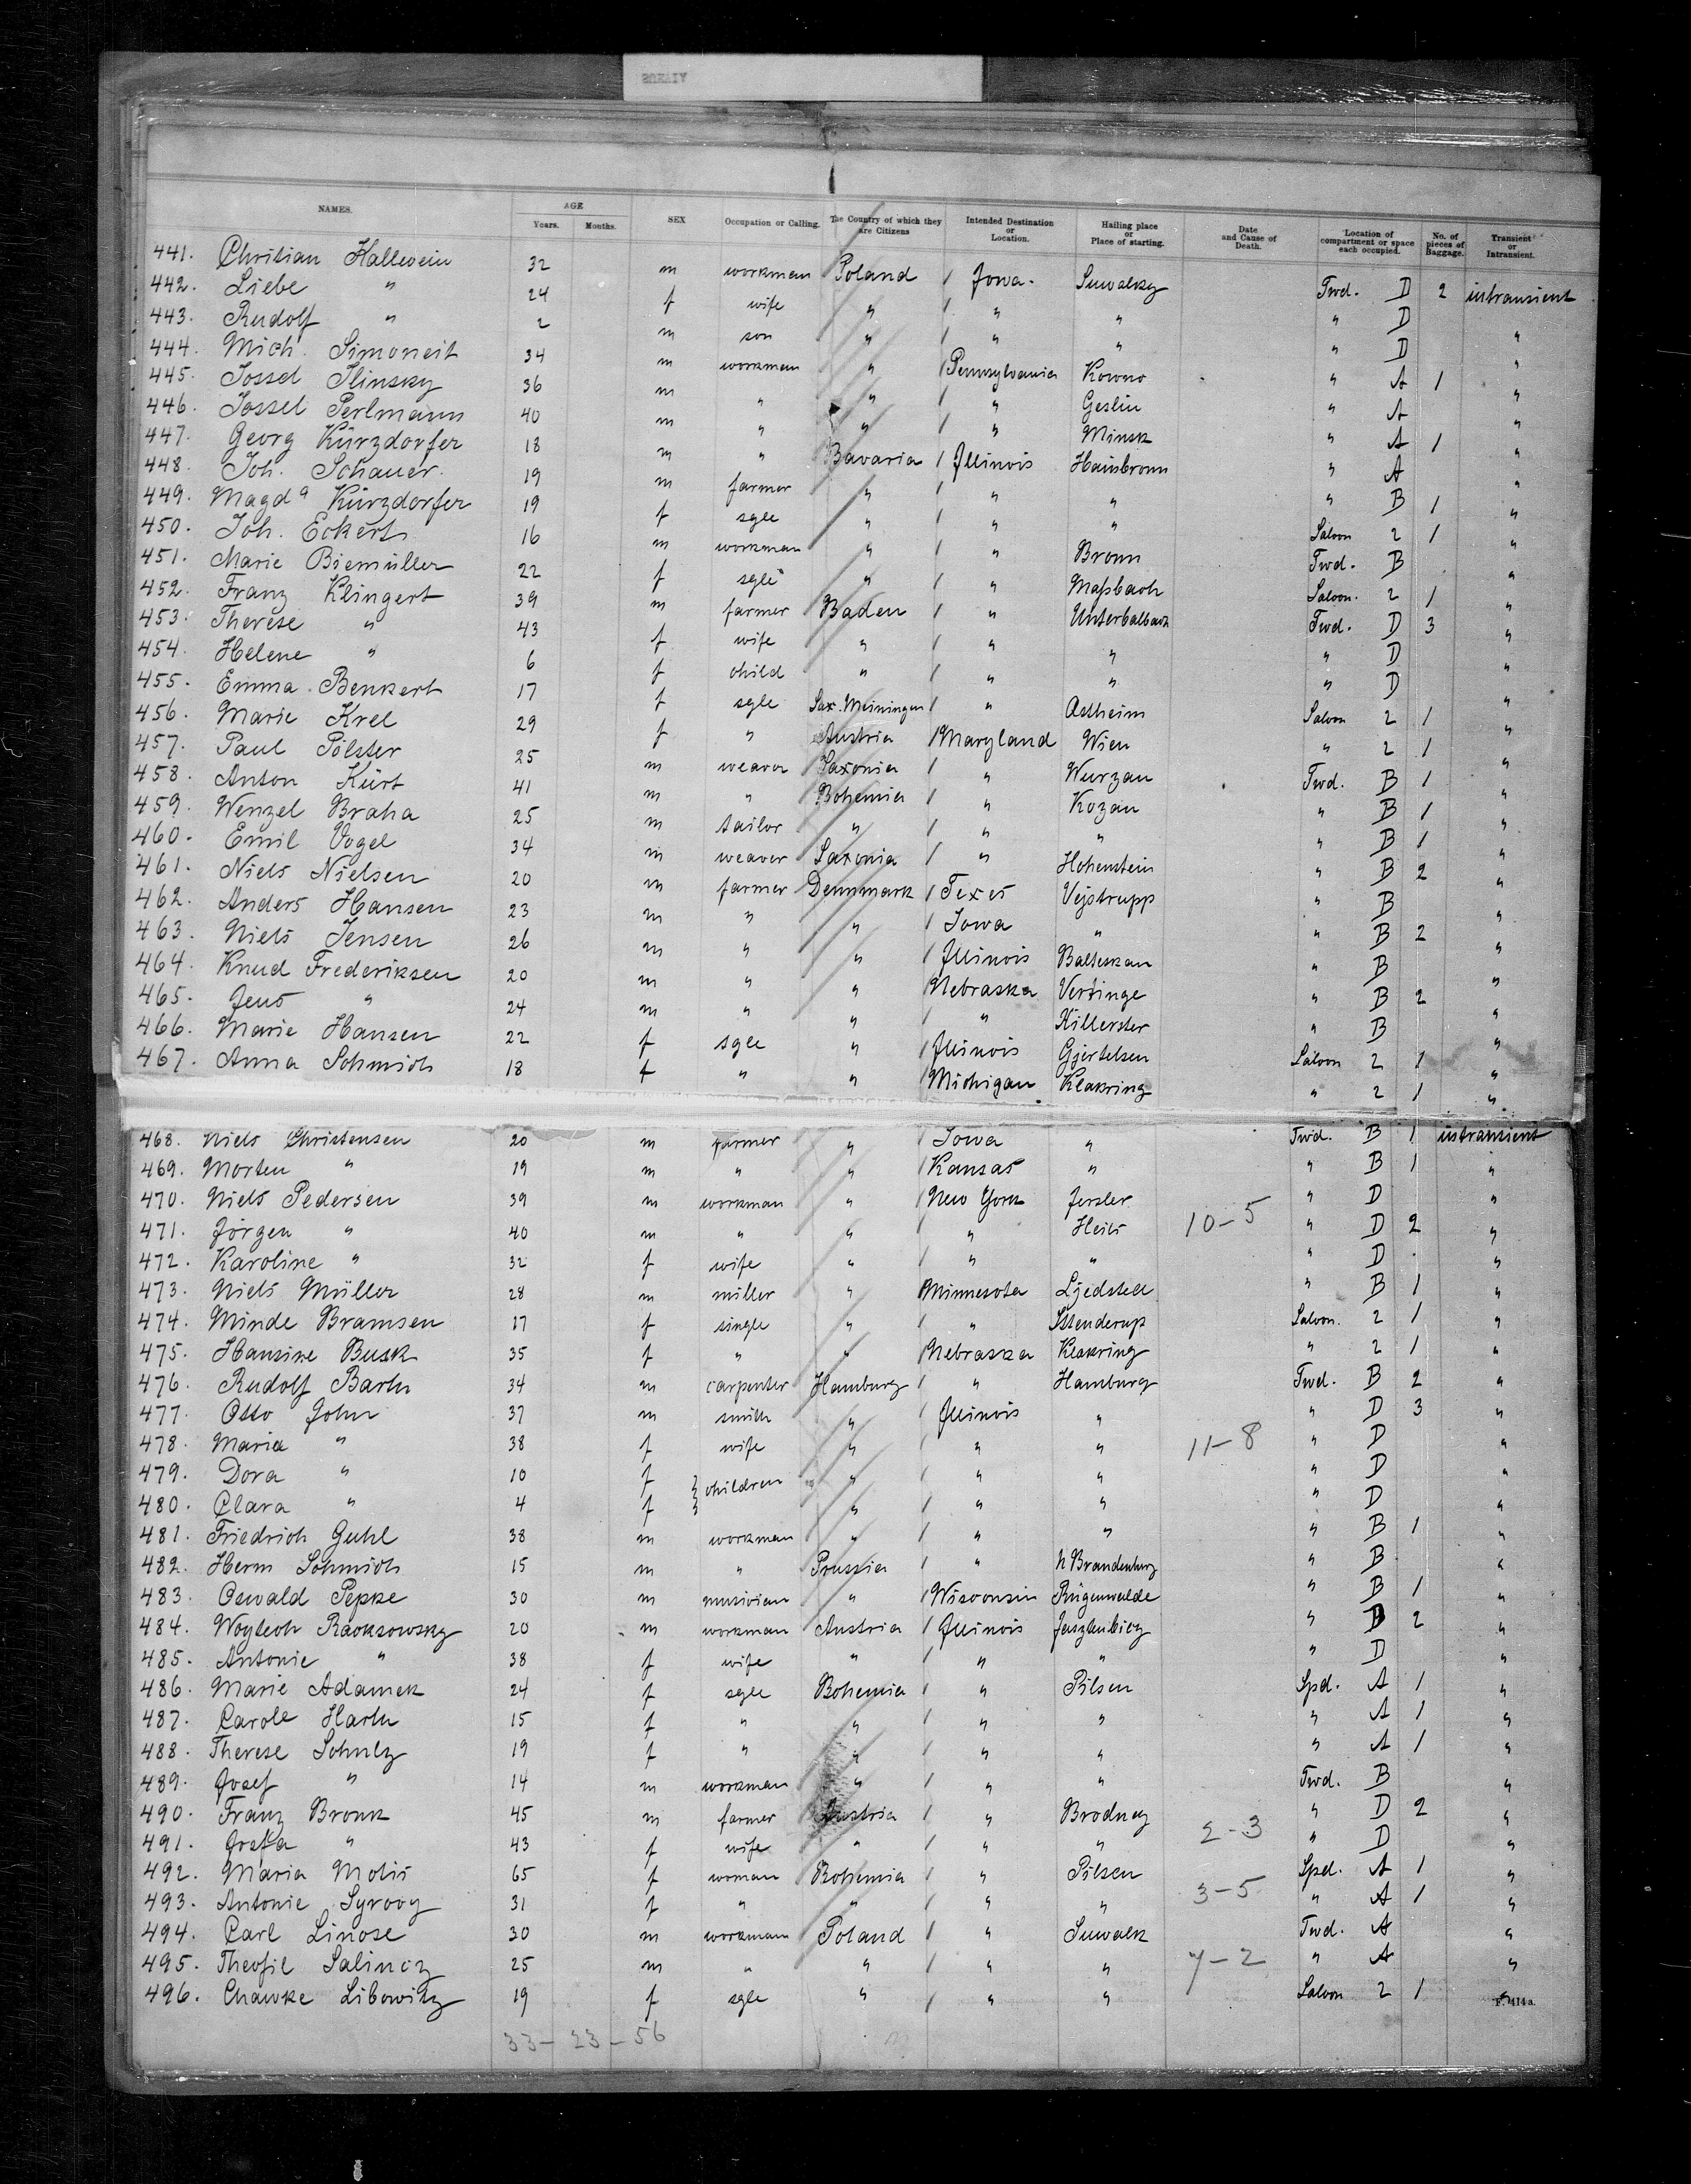 NAMES. AGE Years. Months. SEX Occupation or Calling. The Country of which they are Citizens Intended Destination or Location. Hailing place or Place of starting. Date and Cause of Death. Location of compartment or space each occupied. No. of pieces of Baggage. Transient or Intransient.
441. Christian Hallwein 32 m workman Poland / Iowa. Suwalky Twd. D 2 intransient
442. Liebe " 24 f wife " / " " " D "
443. Rudolf " 2 m son " / " " " D "
444. Mich. Simoneit 34 m workman " / Pennsylvania Kowno " A 1 "
445. Jossel Ilinsky 36 m " " / " Geslin " A "
446. Jossel Perlmann 40 m " " / " Minsk " A 1 "
447. Georg Kürzdorfer 18 m " Bavaria / Illinois Hainbronn " A "
448. Joh. Schauer 19 m farmer " / " " " B 1 "
449. Magda Kürzdorfer 19 f sgle " / " " Saloon 2 1 "
450. Joh. Eckert 16 m workman " / " Bronn Twd. B "
451. Marie Biemüller 22 f sgle " / " Maßbach Saloon. 2 1 "
452. Franz Klingert 39 m farmer Baden / " Unterbalbach Twd. D 3 "
453. Therese " 43 f wife " / " " " D "
454. Helene " 6 f child " / " " " D "
455. Emma Benkert 17 f sgle Sax. Meiningen / " Ostheim Saloon 2 1 "
456. Marie Krel 29 f " Austria / Maryland Wien " 2 1 "
457. Paul Pölster 25 m weaver Saxonia / " Wurzan Twd. B 1 "
458. Anton Kürt 41 m " Bohemia / " Kozan " B 1 "
459. Wenzel Braha 25 m tailor " / " " " B 1 "
460. Emil Vogel 34 m weaver Saxonia / " Hohenstein " B 2 "
461. Niels Nielsen 20 m farmer Dennmark / Texes Vejstrupp " B "
462. Anders Hansen 23 m " " / Iowa " " B 2 "
463. Niels Jensen 26 m " " / Illinois Balteskan " B "
464. Knud Frederiksen 20 m " " / Nebraska Vertinge " B 2 "
465. Jens " 24 m " " / " Killerster " B "
466. Marie Hansen 22 f sgle " / Illinois Gjertelsen Saloon 2 1 "
467. Anna Schmidt 18 f " " / Michigan Klakring " 2 1 "
468. Niels Christensen 20 m farmer " / Iowa " Twd. B 1 intransient
469. Morten " 19 m " " / Kansas " " B 1 "
470. Niels Pedersen 39 m workman " / New York Jersler " D "
471. Jörgen " 40 m " " / " Heils 10-5 " D 2 "
472. Karoline " 32 f wife " / " " " D "
473. Niels Müller 28 m miller " / Minnesota Ljedsted " B 1 "
474. Minde Bramsen 17 f single " / " Stenderup Saloon. 2 1 "
475. Hansine Busk 35 f " " / Nebraska Klakring " 2 1 "
476. Rudolf Barth 34 m carpenter Hamburg / " Hamburg Twd. B 2 "
477. Otto John 37 m smith " / Illinois " " D 3 "
478. Maria " 38 f wife " / " " 11-8 " D "
479. Dora " 10 f } children " / " " " D "
480. Clara " 4 f } " / " " " D "
481. Friedrich Guhl 38 m workman " / " " " B 1 "
482. Herm Schmidt 15 m " Prussia / " N Brandenburg " B "
483. Oswald Pepke 30 m musician " / Wisconsin Rügenwalde " B 1 "
484. Woytech Racksowsky 20 m workman Austria / Illinois " D 2 "
485. Antonie " 38 f wife " / " " " D "
486. Marie Adamek 24 f sgle Bohemia / " Pilsen Spd. A 1 "
487. Carole Harth 15 f " " / " " " A 1 "
488. Therese Schultz 19 f " " / " " " A 1 "
489. Josef " 14 m workman " / " " Twd. B "
490. Franz Bronk 45 m farmer Austria / " Brodney " D 2 "
491. " 43 f wife " / " " 2-3 " D "
492. Maria Motis 65 f woman Bohemia / " Pilsen Spd. A 1 "
493. Antonie Syrovy 31 f " " / " " 3-5 " A 1 "
494. Carl Linose 30 m workman Poland / " Suwalk Twd. A "
495. Theofil Salincz 25 m " " / " " 7-2 " A "
496. Chawke Libowitz 19 f sgle " / " " Saloon 2 1 "
F. 414a.
33-23-56